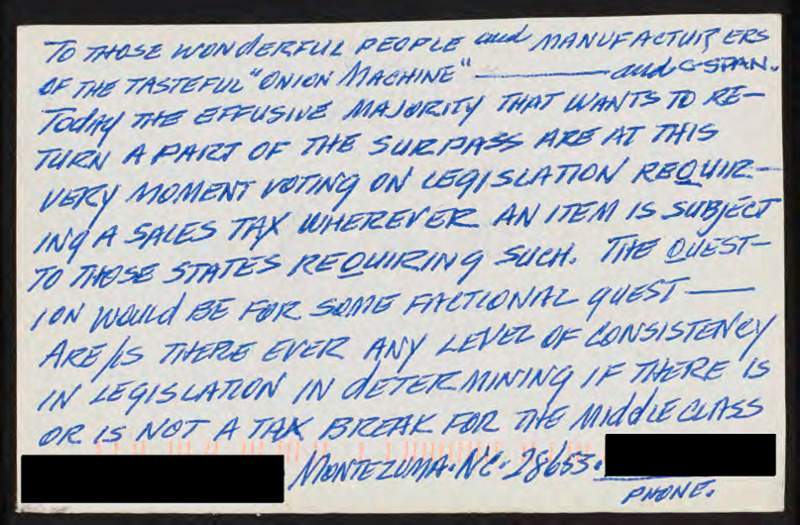 TO THOSE WONDERFUL PEOPLE and MANUFACTURERS
OF THE TASTEFUL "ONION MACHINE" —— and C-SPAN.
Today THE EFFUSIVE MAJORITY THAT WANTS TO RE-
TURN A PART OF THE SURPASS ARE AT THIS
VERY MOMENT VOTING ON LEGISLATION REQUIR-
ING A SALES TAX WHEREVER AN ITEM IS SUBJECT
TO THOSE STATES REQUIRING SUCH. THE QUEST-
ION WOULD BE FOR SOME FACTIONAL QUEST ——
ARE/IS THERE EVER ANY LEVEL OF CONSISTENCY
IN LEGISLATION IN DETERMINING IF THERE IS
OR IS NOT A TAX BREAK FOR THE MIDDLE CLASS
MONTEZUMA. NC. 28653.
PHONE.